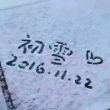 初雪
2016.11.22